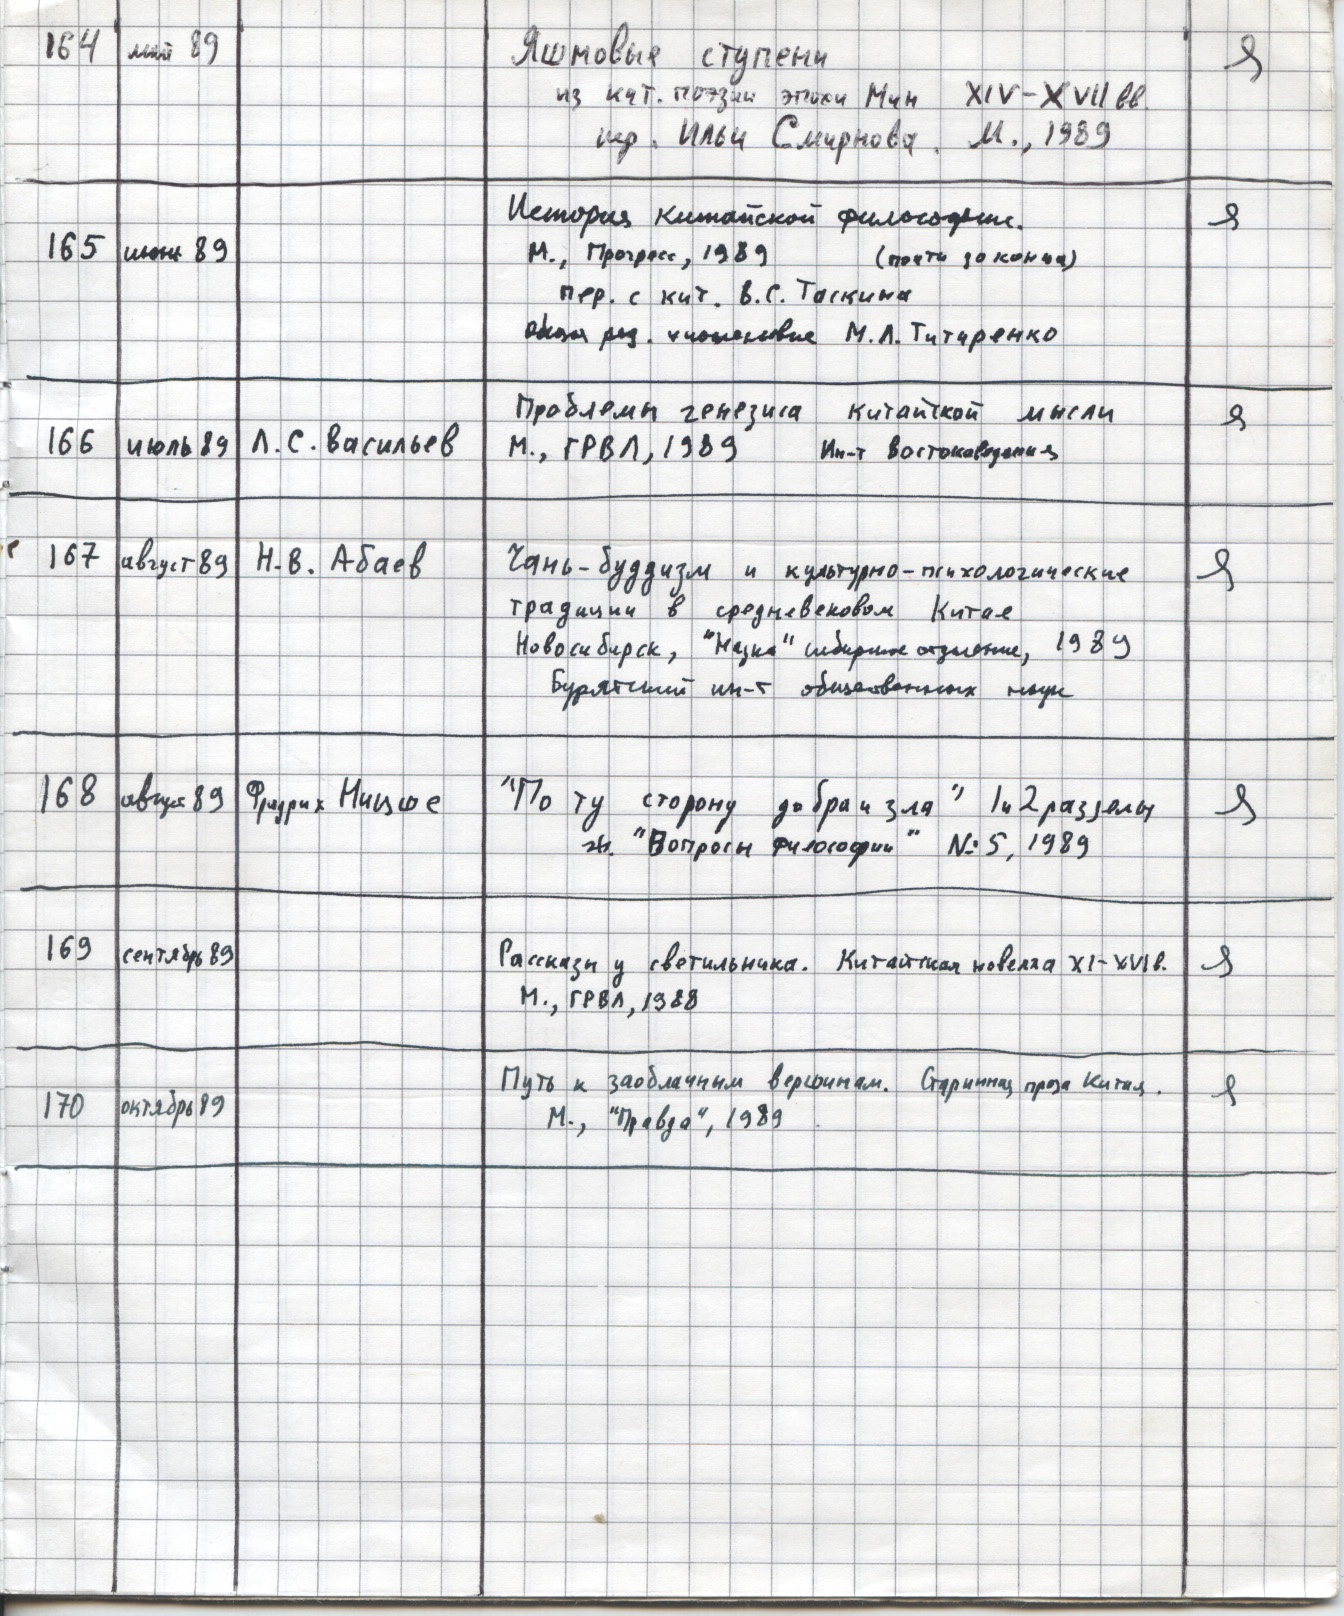 164 май 89 Яшмовые ступени Я
из кит. поэзии эпохи Мин XIV-XVII вв.
пер. Ильи Смирнова. М., 1989
История китайской философии. Я
165 июнь 89 М., Прогресс, 1989 (почти до конца)
пер. с кит. В.С. Таскина
общая ред. и послесловие М.Л. Титаренко
Проблемы генезиса китайской мысли Я
166 июль 89 Л.С. Васильев М., ГРВЛ, 1989 Ин-т Востоковедения
167 август 89 Н.В. Абаев Чань-буддизм и культурно-психологические Я
традиции в средневековом Китае
Новосибирск, "Наука" сибирское отделение, 1989
Бурятский ин-т общественных наук
168 август 89 Фридрих Ницше "По ту сторону добра и зла" 1 и 2 разделы Я
ж. "Вопросы философии" № 5, 1989
169 сентябрь 89 Рассказы у светильника. Китайская новелла XI-XVI в. Я
М., ГРВЛ, 1988
Путь к заоблачным вершинам. Старинная проза Китая. Я
170 октябрь 89 М., "Правда", 1989